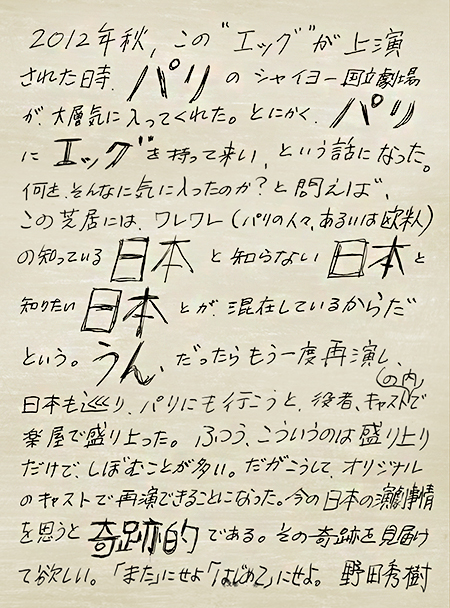 2012年秋,この"エッグ"が上演
された時、パリのシャイヨー国立劇場
が、大層気に入ってくれた。とにかく、パリ
に"エッグ"を持って来い、という話になった。
何を、そんなに気に入ったのか?と問えば、
この芝居には、ワレワレ(パリの人々、あるいは欧米人)
の知っている日本と知らない日本と
知りたい日本とが、混在しているからだ
という。うん、だったらもう一度再演し、
日本も巡り、パリにも行こうと、役者、キャスト(の内)で
楽屋で盛り上った。ふつう、こういうのは盛り上り
だけで、しぼむことが多い。だがこうして、オリジナル
のキャストで再演できることになった。今の日本の演劇事情
を思うと奇跡的である。その奇跡を見届け
て欲しい。「また」にせよ「はじめて」にせよ。 野田秀樹